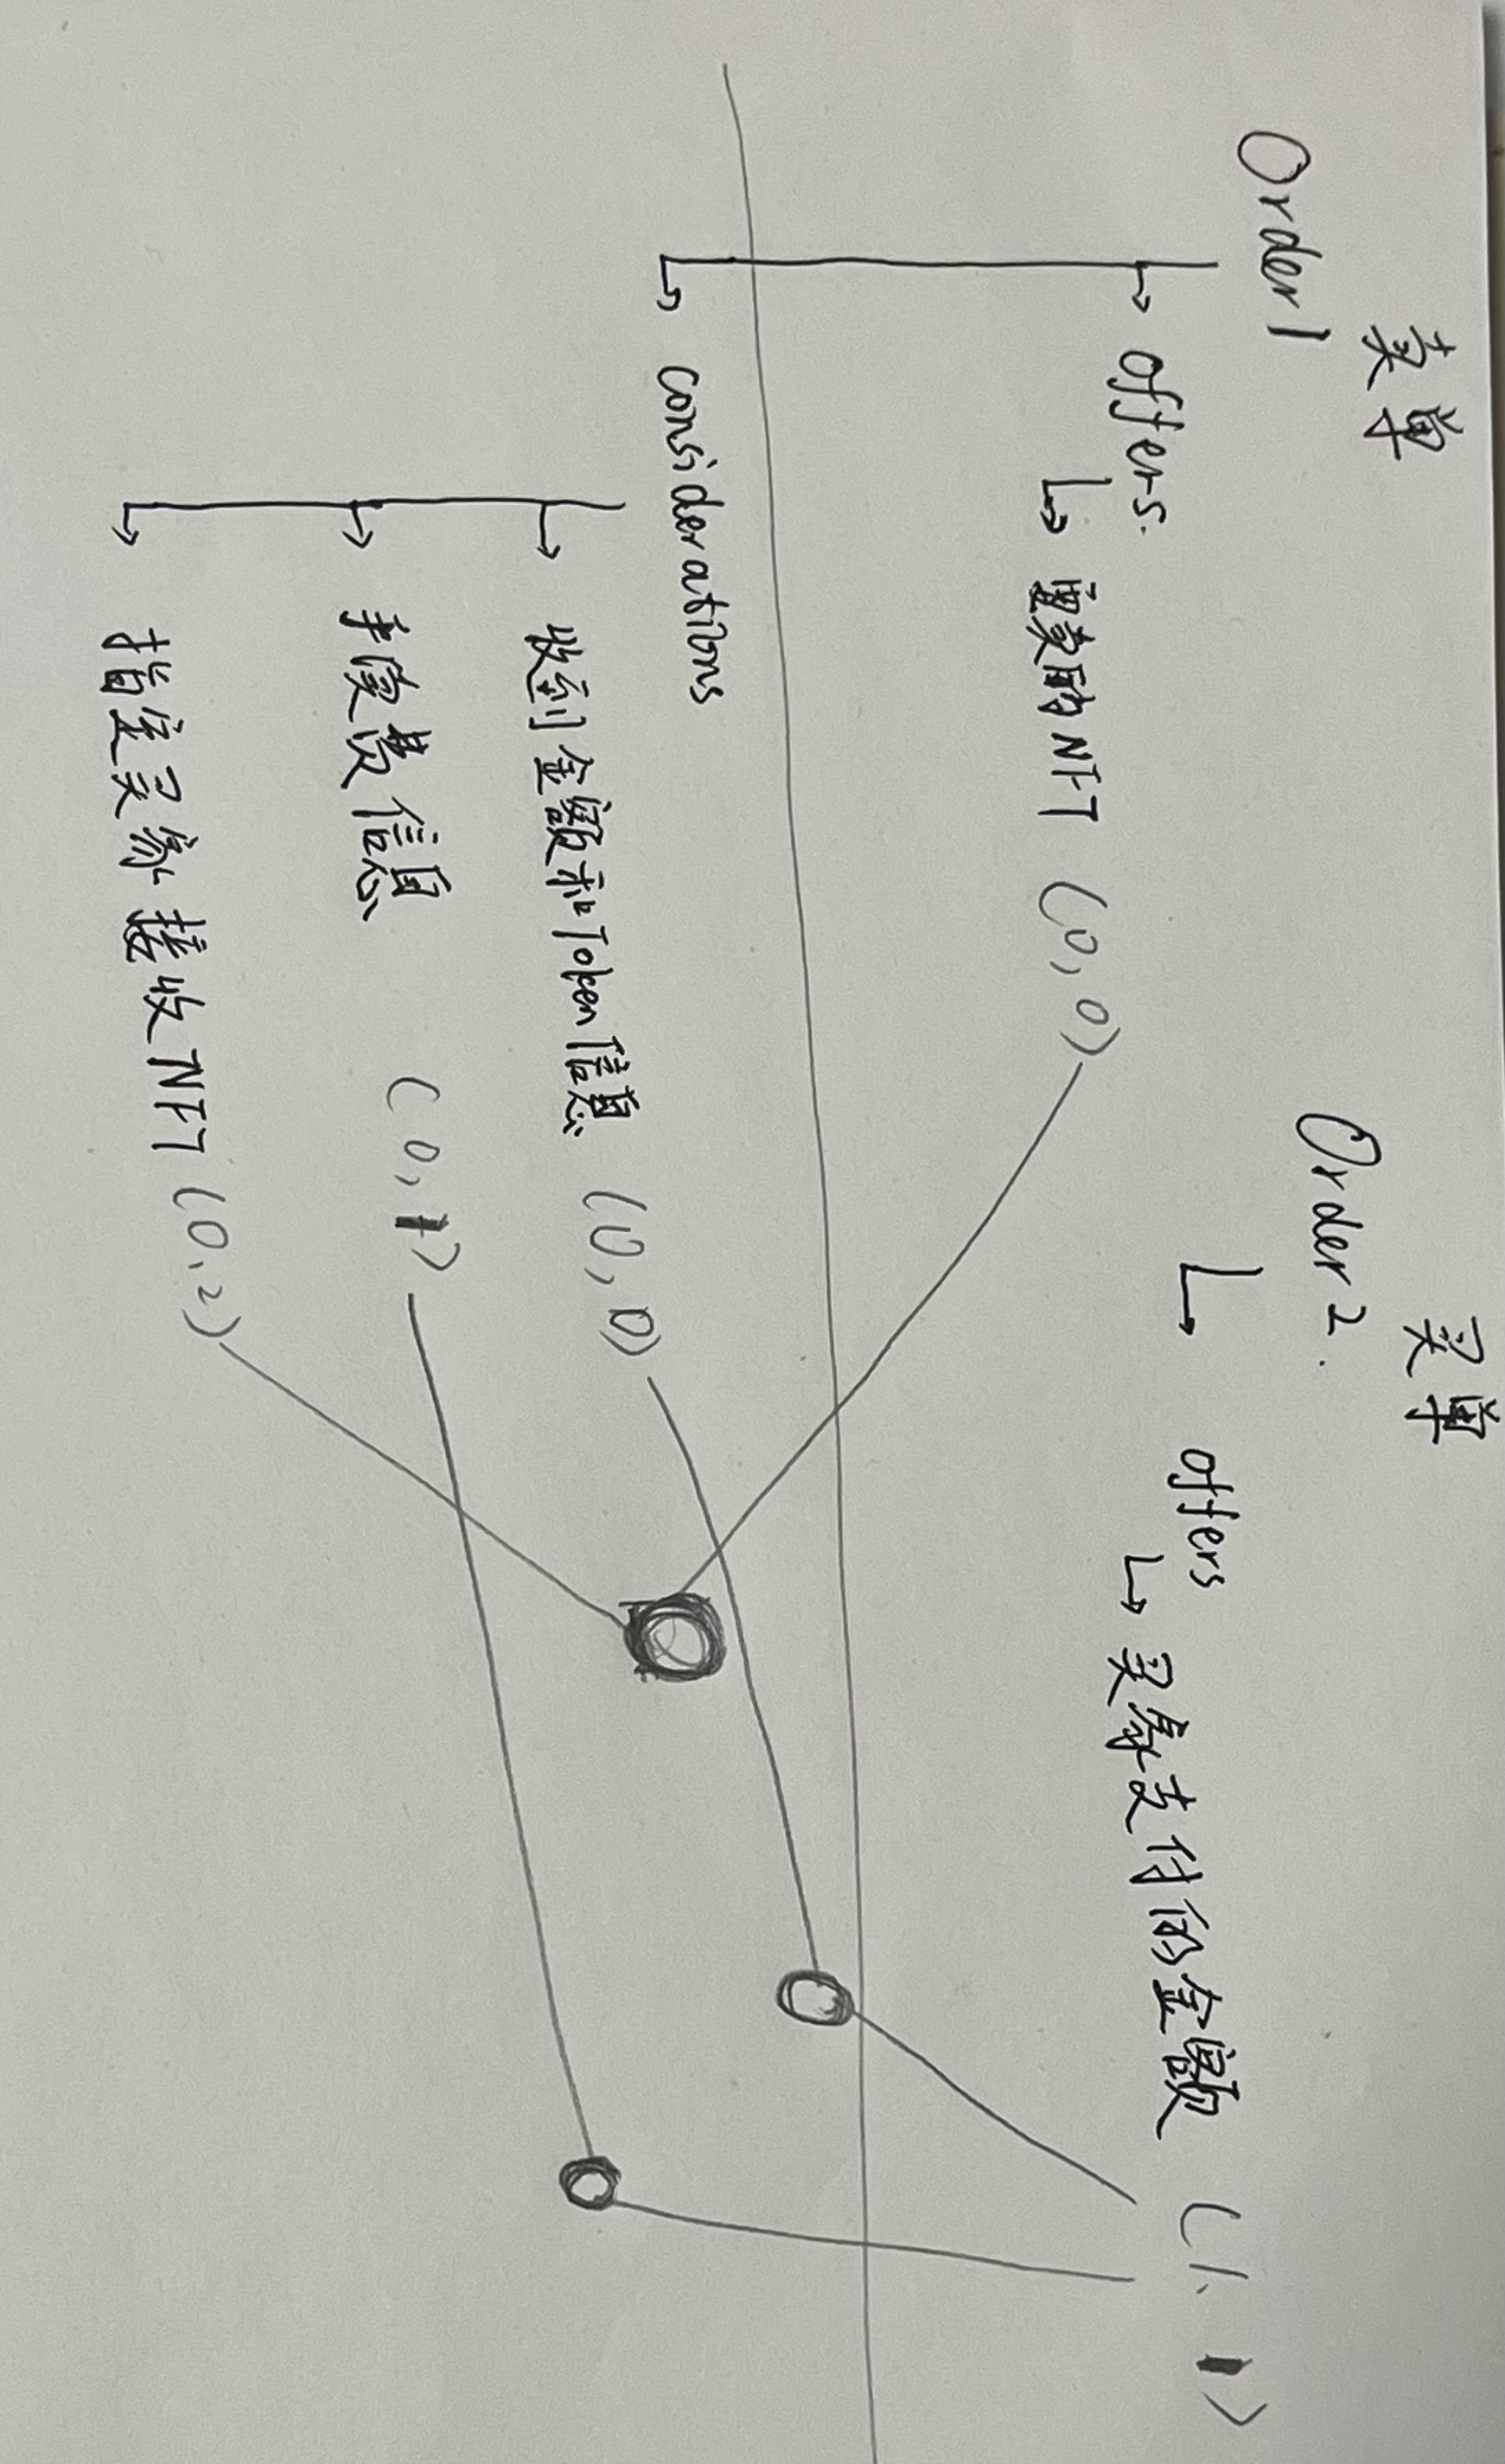 卖单
Order 1
offers.
要卖的NFT (0,0)
considerations
收到金额和Token信息 (0,0)
手续费信息 (0,1)
指定买家接收NFT (0,2)
买单
Order 2.
offers
买家支付的金额 (1、1)